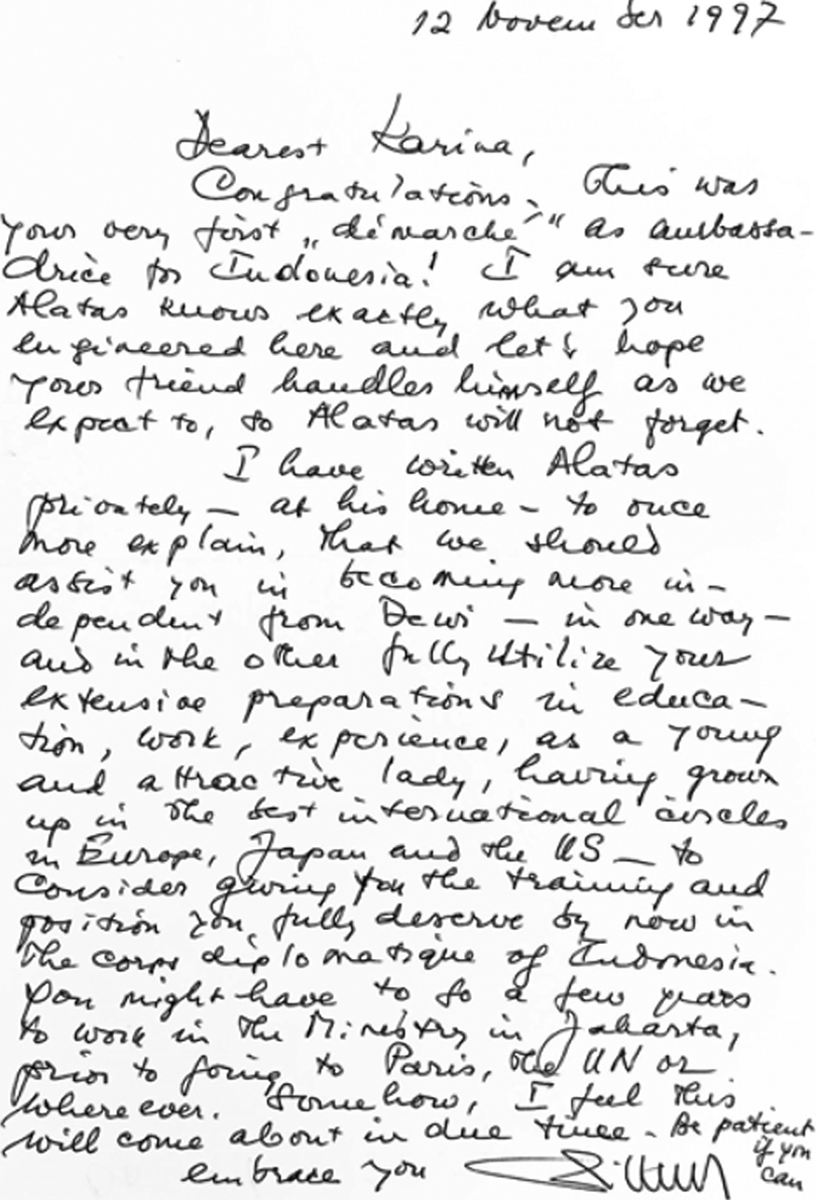 12 November 1997
Dearest Karina,
Congratulations. This was
your very first „démarche“ as ambassa-
drice for Indonesia! I am sure
Alatas knows exactly what you
engineered here and let's hope
your friend handles himself as we
expect to, so Alatas will not forget.
I have written Alatas
privately – at his home – to once
more explain, that we should
assist you in becoming more in-
dependent from Dewi – in one way –
and in the other fully utilize your
extensive preparations in educa-
tion, work, experience, as a young
and attractive lady, having grown
up in the best international circles
in Europe, Japan and the US – to
consider giving you the training and
position you fully deserve by now in
the corps diplomatique of Indonesia.
You might have to go a few years
to work in the Ministry in Jakarta,
prior to going to Paris, the UN or
where ever. Somehow, I feel this
will come about in due time. Be patient
if you
can
embrace you